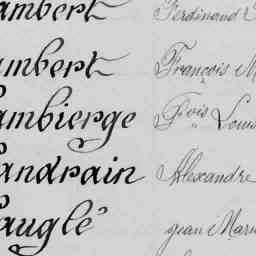 ambert Ferdinand
ambert François M
ambierge Fois Louis
andrain Alexandre
auglé jean Marie